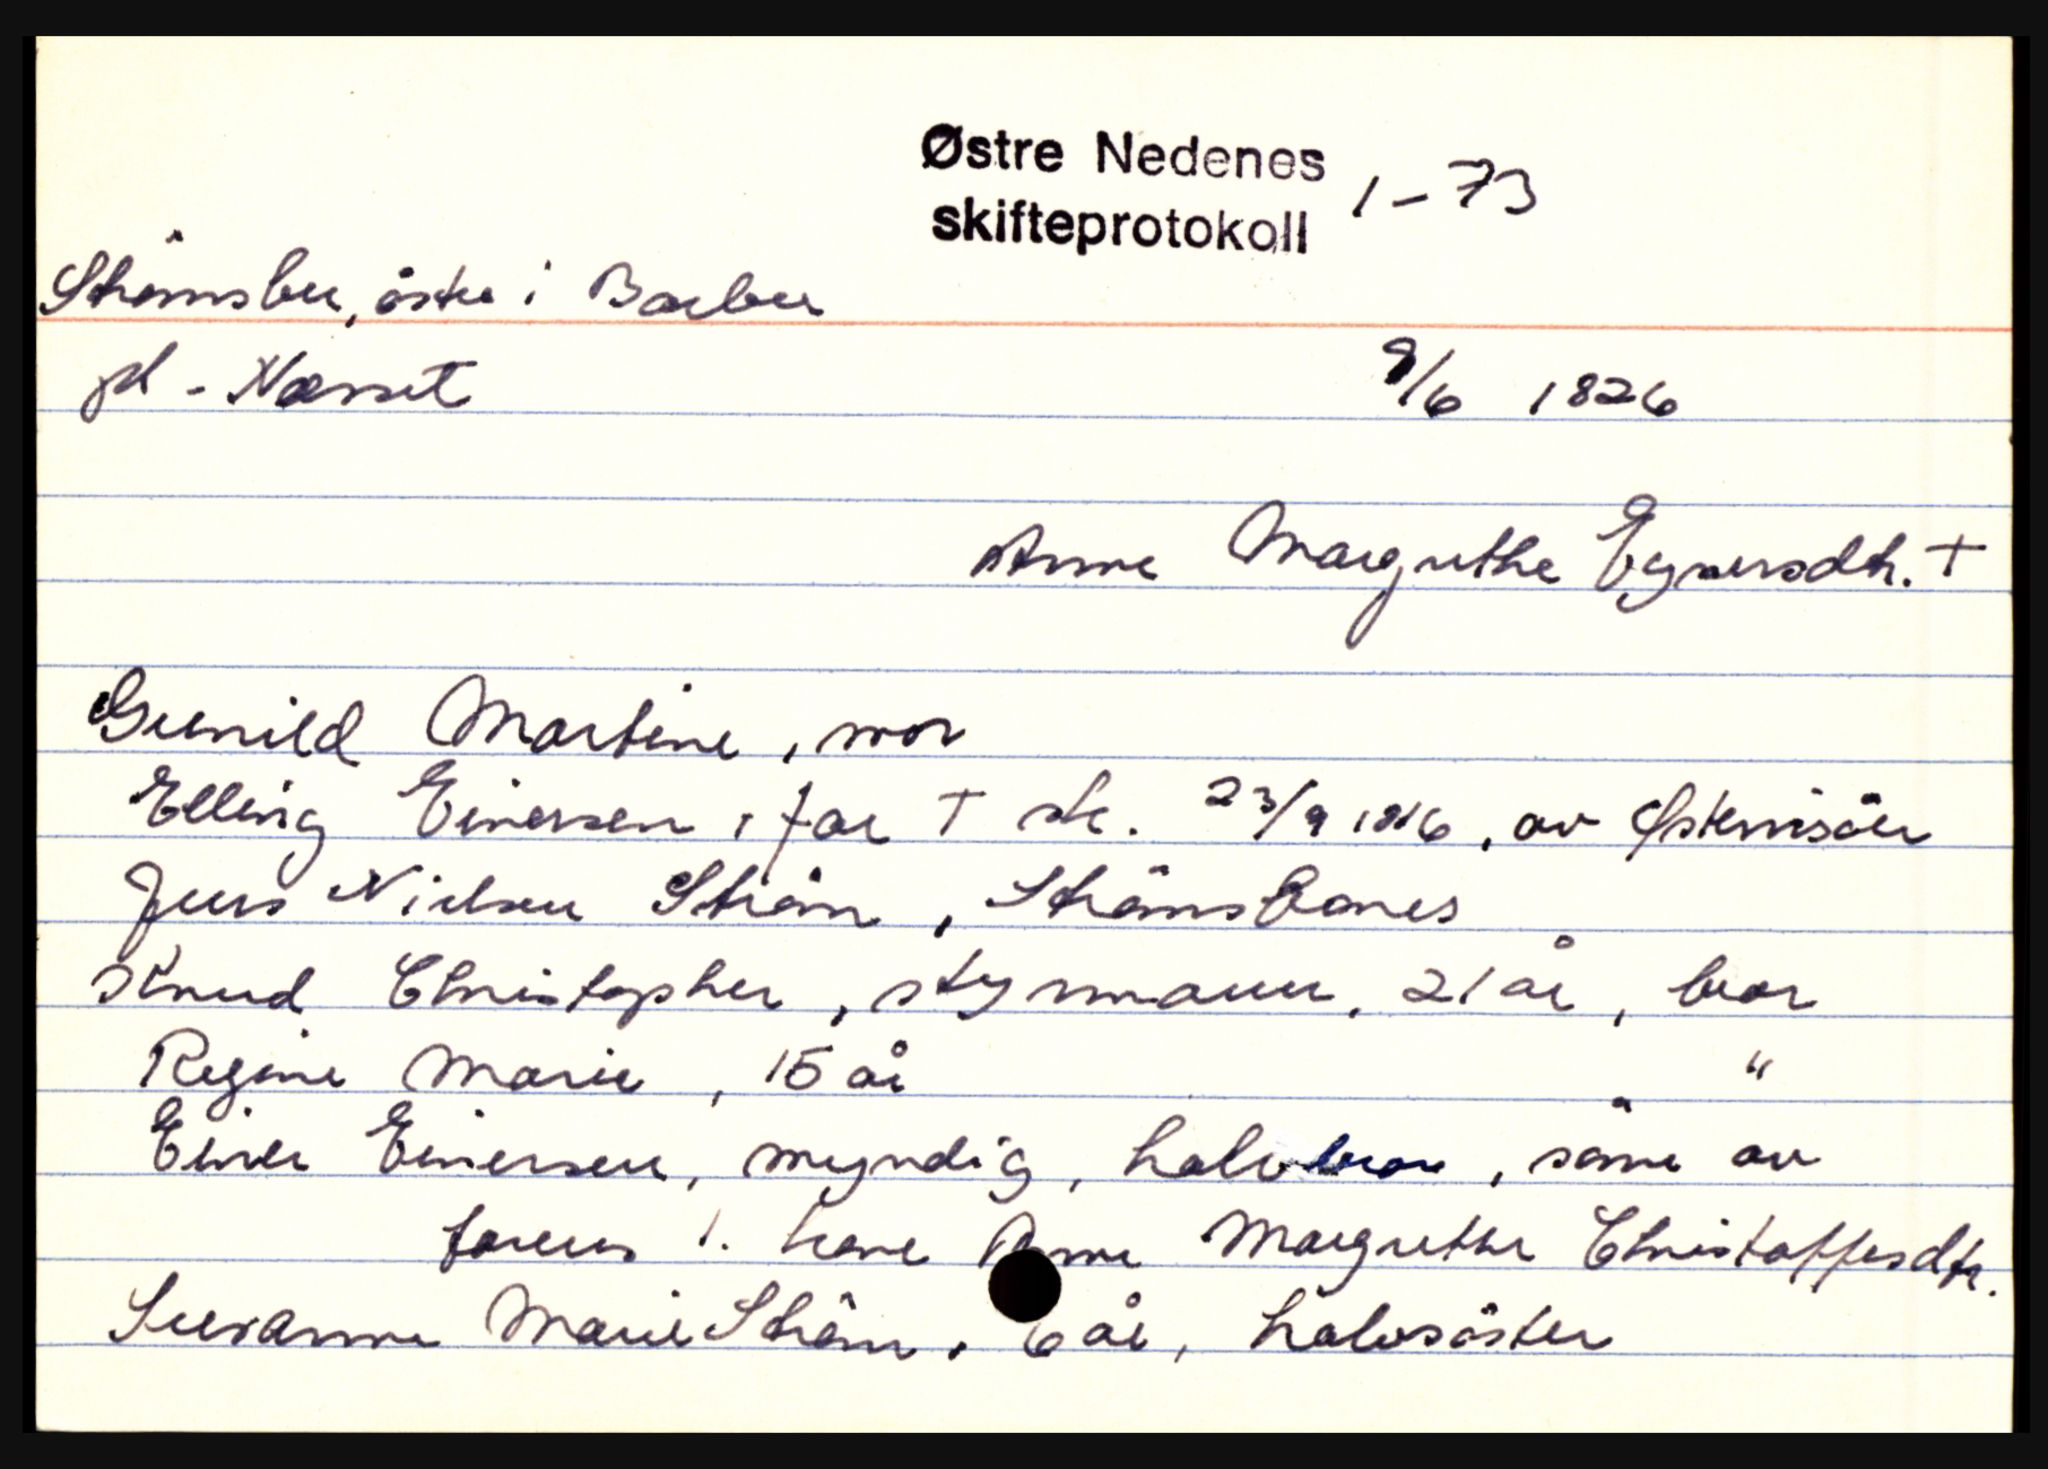 Østre Nedenes
skifteprotokoll 1-73
Strömsbu, östre i Barbu
pl - Næsset 9/6 1826
Anne Margrethe Eynersdtr. +
Gunild Martine, mor
Elling Einersen, far + sk. 23/9 1816, av Østerrisöer
Jens Nielsen Ström, Strömsbones
Knud Christopher, styrmann, 21 år, bror
Regine Marie, 15 år "
Einer Einersen, myndig, halvbror, sönn av
farens 1. kone Anne Margrethe Christoffersdtr.
Susanne Marie Ström, 6 år, halvsöster